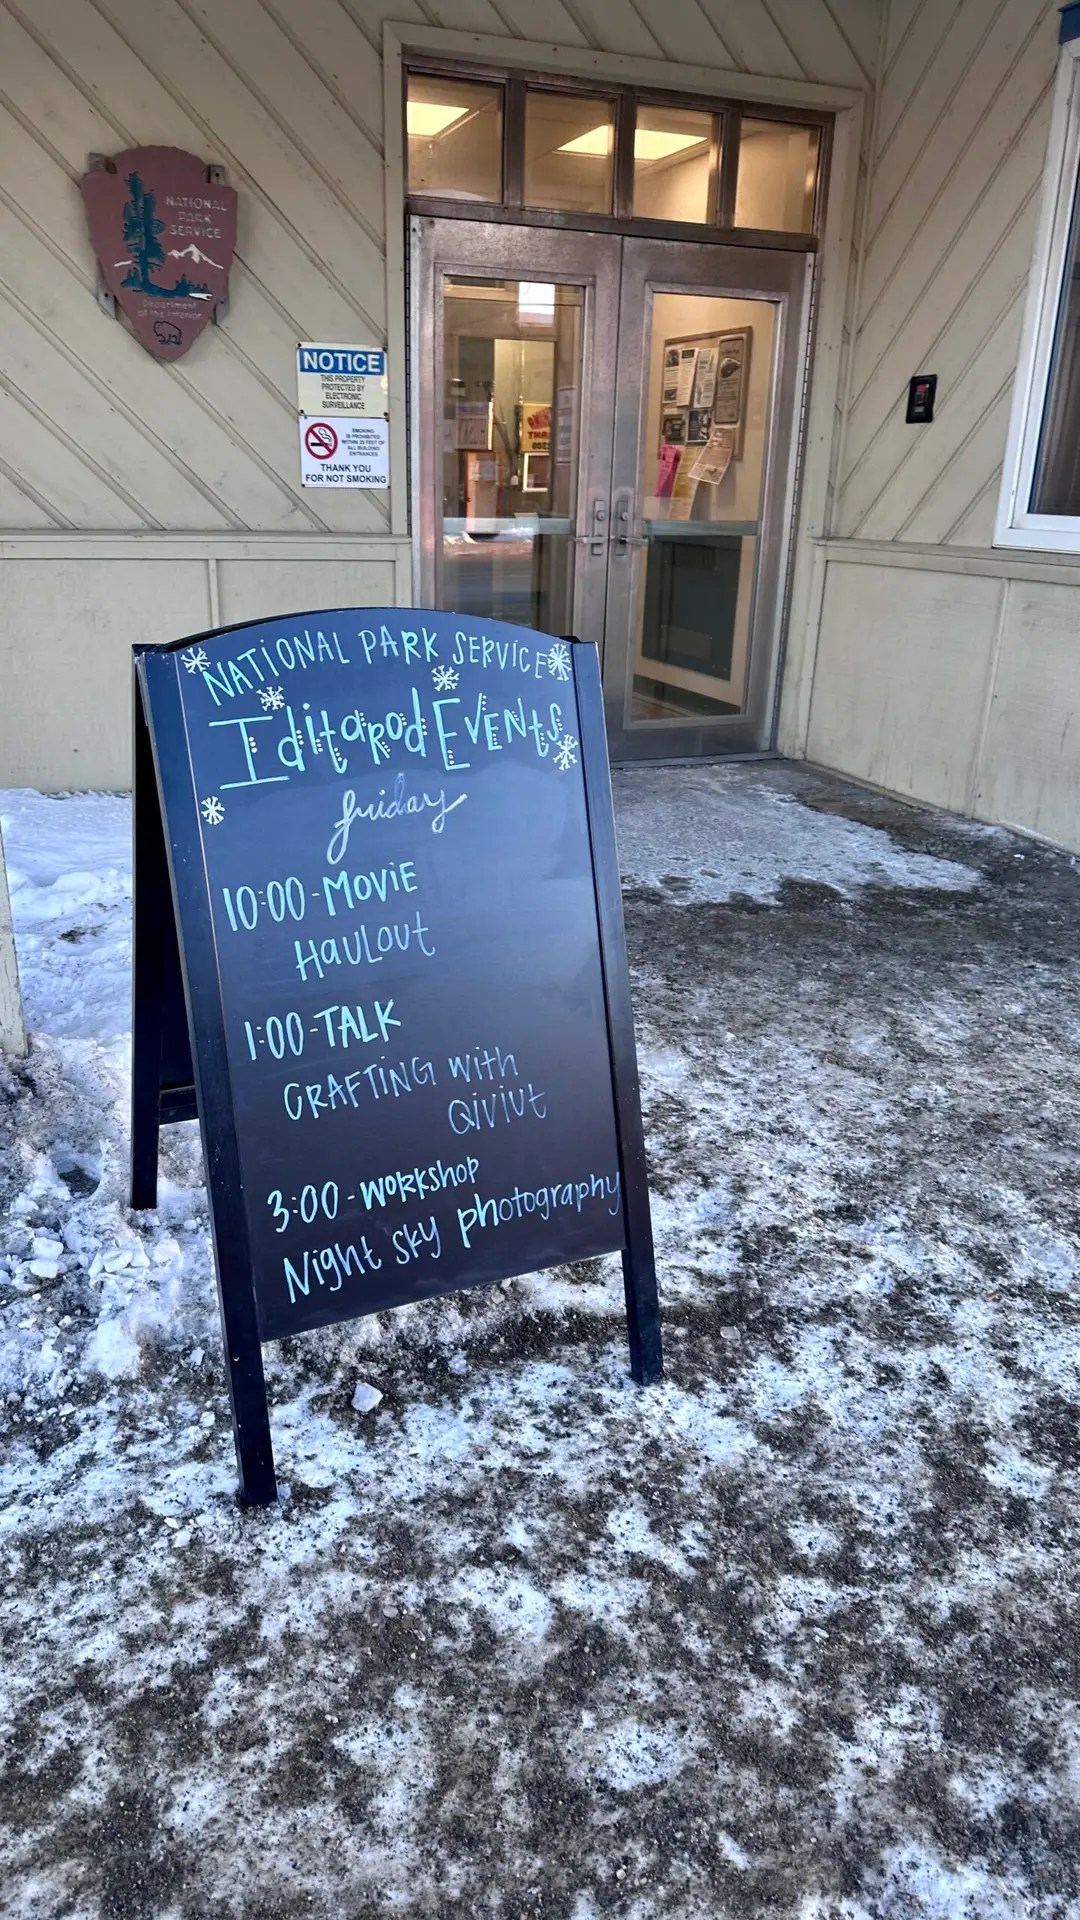 NATIONAL
PARK
SERVICE
Department
of the Interior
NOTICE
THIS PROPERTY
PROTECTED BY
ELECTRONIC
SURVEILLANCE
SMOKING
IS PROHIBITED
WITHIN 25 FEET OF
ALL BUILDING
ENTRANCES
THANK YOU
FOR NOT SMOKING
NATIONAL PARK SERVICE
Iditarod Events
friday
10:00-MOVIE
HAULOUT
1:00-TALK
CRAFTING with
QIVIUT
3:00-WORKSHOP
Night sky photography